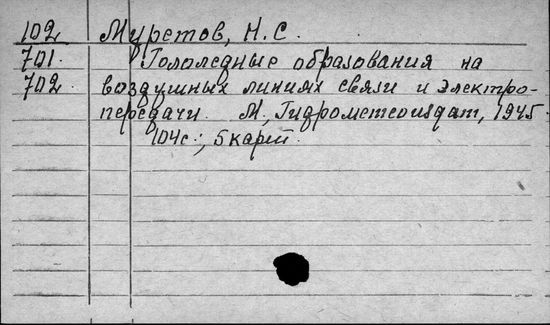 102 Муретов, Н. С.
701. Гололедные образования на
702. воздушных линиях связи и электро-
передачи. М., Гидрометеоиздат, 1945.
104с.; 5 карт.